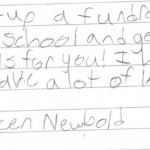 -up a fundr
school and ge
s for you! I
ave a lot of
een Newbold